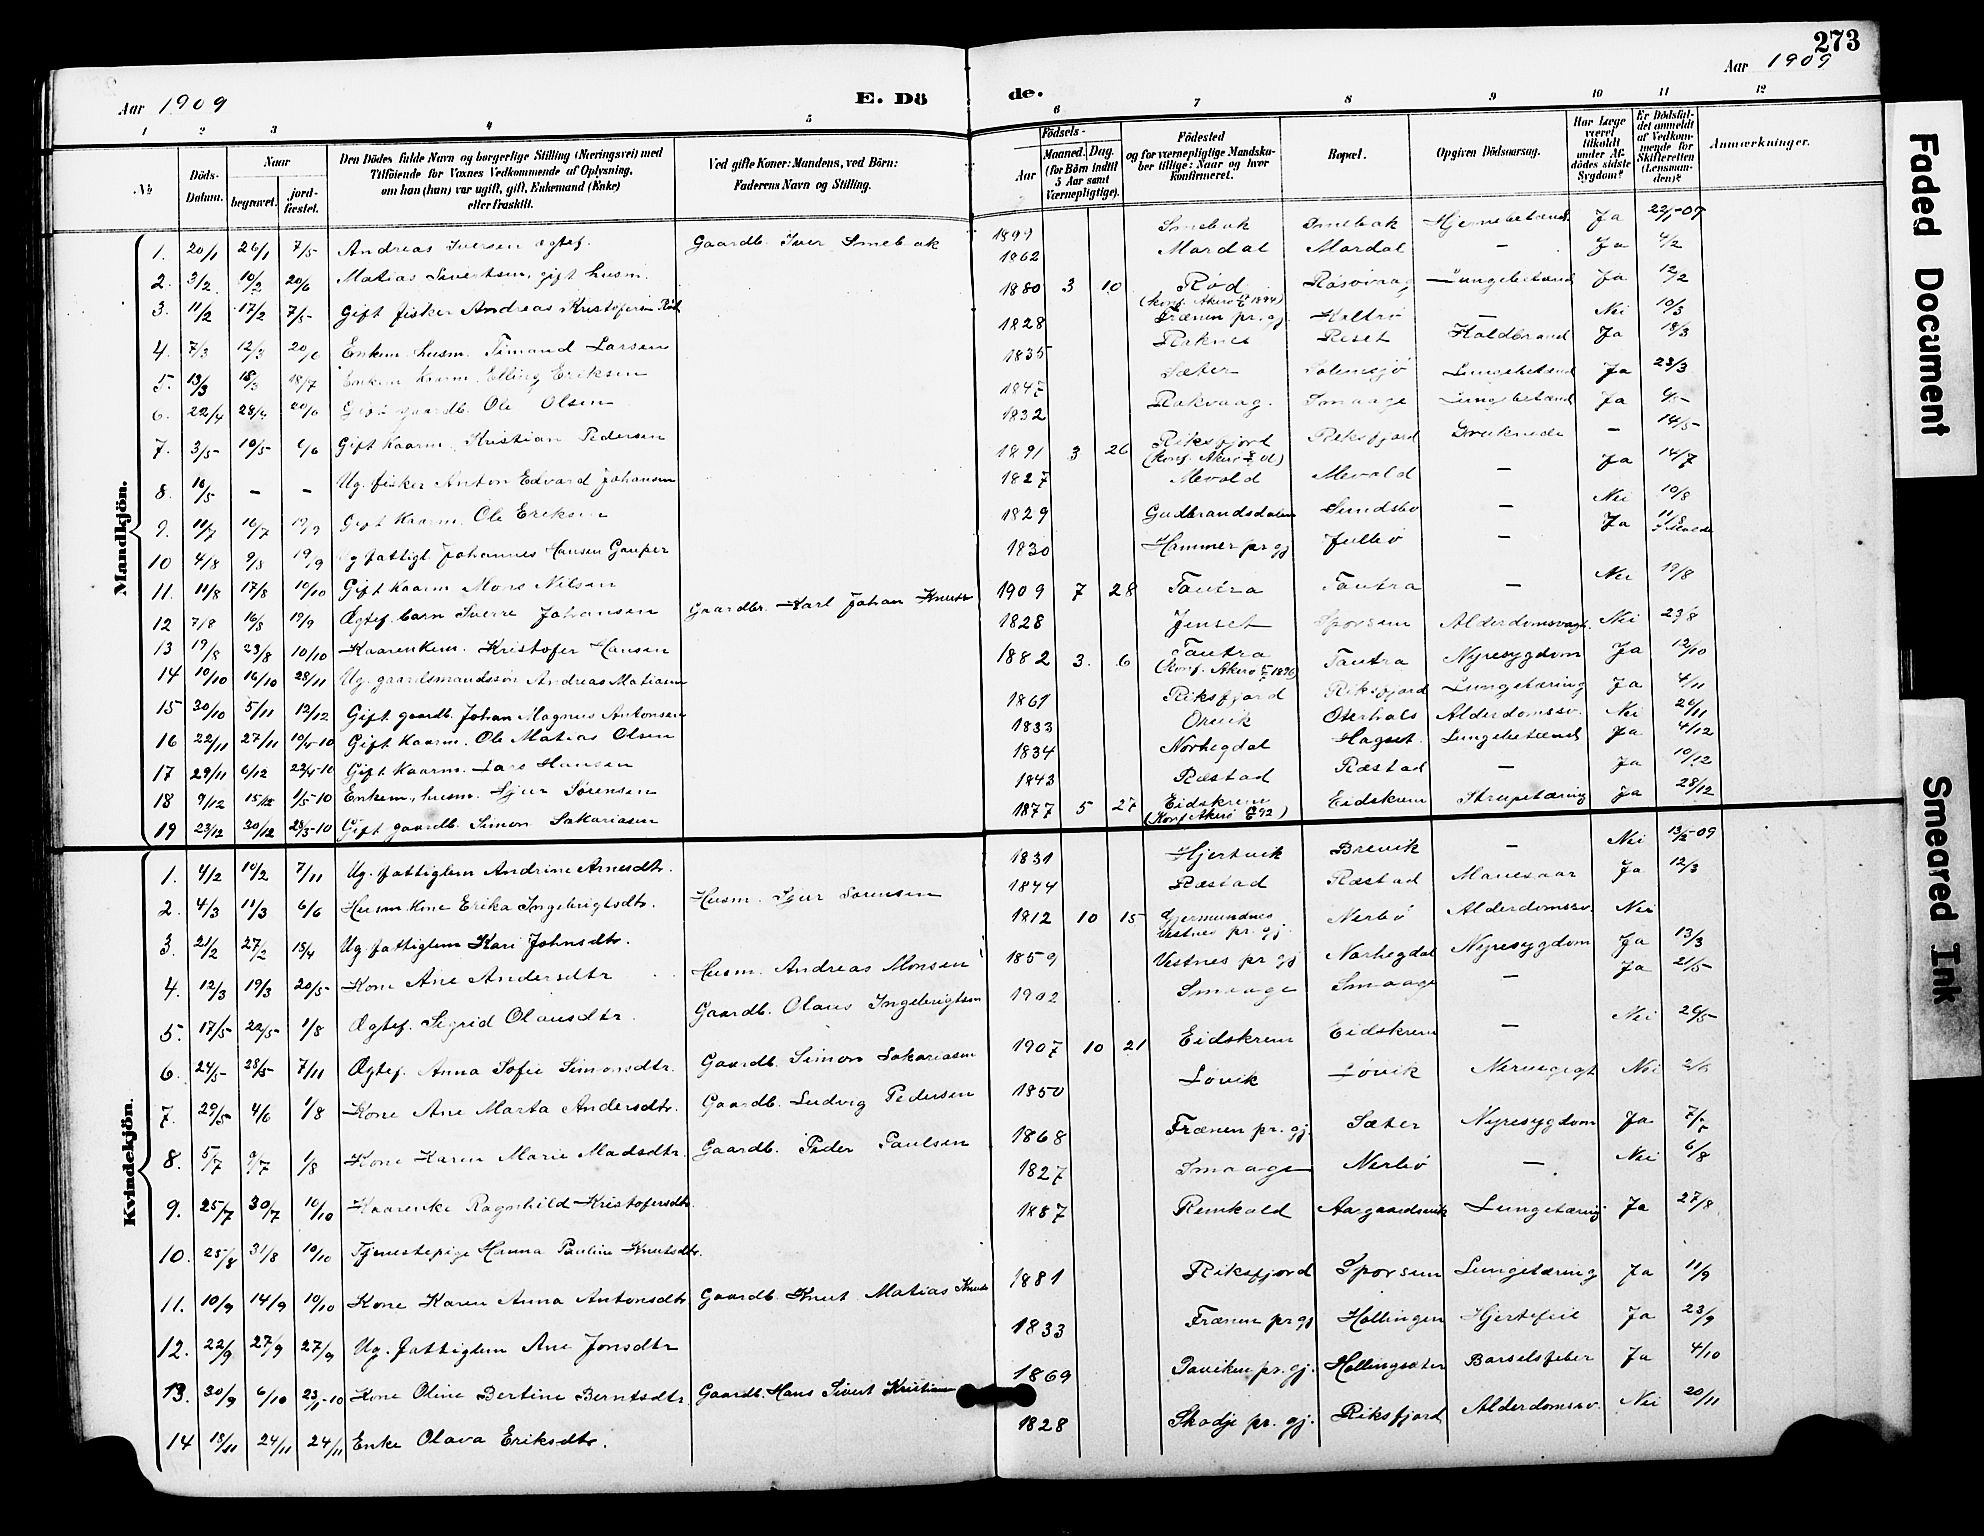 273
Aar 1909
E. Dö de.
Aar 1909
1 2 3 4 5 6 7 8 9 10 11 12
№
Döds-Datum.
Naar
begravet.
jord-fæstet.
Den Dödes fulde Navn og borgerlige Stilling (Næringsvei) med
Tilföiende for Voxnes Vedkommende af Oplysning,
om han (hun) var ugift, gift, Enkemand (Enke)
eller fraskilt.
Ved gifte Koner: Mandens, ved Börn:
Faderens Navn og Stilling.
Födsels-
Aar
Maaned. Dag.
(for Börn indtil
5 Aar samt
Værnepligtige).
Födested
og for værnepligtige Mandska-
ber tillige: Naar og hvor
konfirmeret.
Bopæl.
Opgiven Dödsaarsag.
Har Læge
været
tilkaldt
under Af-
dödes sidste
Sygdom?
Er Dödsfal-
det anmeldt
af Vedkom-
mende for
Skifteretten
(Lensman-
den)?
Anmærkninger.
Mandkjön.
1. 20/1 26/1 7/5 Andreas Iversen ægtef. Gaardb. Iver Smebak 1899 Smebak Smebak Hjernebetænd. Ja 22/1-09
2. 3/2 10/2 20/6 Matias Sivertsen, gift husm. 1862 Mordal Mordal — Ja 4/2
3. 11/2 17/2 7/5 Gift fisker Andreas Kristofersen Rød 1880 3 10 Rød Lungebetænd Ja 12/2
4. 7/3 12/3 Enkem. husm. Timand Larsen 1828 Frænen pr. gj. — Nei 10/3
5. 13/3 18/3 18/7 Enkem Kaarm. Elling Eriksen 1835 Raknes Riset Koldbrand Ja 18/3
6. 22/4 28/4 20/6 Gift gaardb. Ole Olsen 1847 Sæter Lungebetænd Ja 23/3
7. 3/5 10/5 6/6 Gift Kaarm. Kristian Pedersen 1832 Rakvaag. Smaage Lungebetænd Ja
8. 10/5 — — Ug. fisker Anton Edvard Johansen 1891 3 26 Riksfjord Riksfjord Druknede — 14/5
9. 11/7 16/7 19/9 Gift Kaarm. Ole Eriksen 1827 Mevold Mevold — Ja 14/7
10 4/8 9/8 19/9 Ug fattigl. Johannes Hansen Gauper 1829 Gudbrandsdalen Sundsbø — Nei 10/8
11. 11/8 17/8 10/10 Gift Kaarm Mons Nilsen 1830 Hammer pr gj Julbø — Ja 11/8
12 7/8 16/8 19/9 Ægtef. barn Sverre Johansen Gaardbr. Karl Johan Knuts 1909 7 28 Tautra Tautra — Nei 19/8
13 19/8 23/8 10/10 Kaarenkem. Kristofer Hansen 1828 Jenset Sporsem Alderdomsvagh. Nei 23/8
14 10/10 16/10 28/11 Ug. gaardsmandssøn Andreas Matiasen 1882 3. 6 Tautra Tautra Nyresygdom Ja 12/10
15 30/10 5/11 12/12 Gift gaardb. Johan Magnus Antonsen 1861 Riksfjord Riksfjord Lungetæring Ja 4/11
16 22/11 27/11 10/4-10 Gift Kaarm. Ole Matias Olsen 1833 Orvik Oterhals Alderdomssv. Nei 26/11
17 29/11 6/12 22/4-10 Gift Kaarm. Lars Hansen 1834 Norhegdal Hagset. Lungebetænd Ja 4/12
18 9/12 15/12 1/5-10 Enkem., husm. Sjur Sørensen 1843 Ræstad Ræstad — Ja 10/12
19 23/12 30/12 28/3-10 Gift gaardb. Simon Sakariasen 1877 5 27 Eidskrem Eidskrem Strupetæring Ja 28/12
Kvindekjön.
1. 4/2 10/2 7/11 Ug. fattiglem Andrine Arnesdtr. 1831 Hjertvik Brevik — Nei 13/2-09
2. 4/3 11/3 6/6 Husm. Kone Erika Ingebrigtsdtr. Husm. Sjur Sørensen 1844 Ræstad Ræstad Mavesaar Ja 12/3
3. 21/2 27/2 15/4 Ug. fattiglem Kari Johnsdtr. 1812 10 15 Gjermundnes Vestnes pr. gj. Nerbø Alderdomssv. Nei
4. 12/3 19/3 20/5 Kone Ane Andersdtr Husm. Andreas Monsen 1859 Vestnes pr gj Norhegdal Nyresygdom Ja 13/3
5. 17/5 22/5 1/8 Ægtef. Sigrid Olausdtr. Gaardb. Olaus Ingebrigtsen 1902 Smaage Smaage — Ja 21/5
6. 24/5 28/5 7/11 Ægtef. Anna Sofie Simonsdtr. Gaardb. Simon Sakariasen 1907 10 21 Eidskrem Eidskrem — Nei 26/5
7. 29/5 4/6 1/8 Kone Ane Marta Andersdtr. Gaardb. Ludvig Pedersen 1850 Løvik Løvik Nervegigt Nei 2/6
8. 5/7 9/7 1/8 Kone Karen Marie Madsdtr. Gaardb. Peder Paulsen 1868 Frænen pr. gj. Sæter Nyresygdom Ja 7/7
9. 25/7 30/7 10/10 Kaarenke Ragnhild Kristofersdtr. 1827 Smaage Nerbø — Nei 6/8
10. 25/8 31/8 10/10 Tjenestepige Hanna Pauline Knutsdtr. 1887 Remkold Aargaardsvik Lungetæring Ja 27/8
11. 10/9 14/9 10/10 Kone Karen Anna Antonsdtr Gaardb. Knut Matias Knuts 1881 Riksfjord Sporsem Lungetæring Ja 11/9
12. 22/9 27/9 27/9 Ug. fattiglem Ane Jonsdtr 1833 Frænen pr gj Hollingen Hjertefeil Ja 23/9
13. 30/9 6/10 23/1-10 Kone Oline Bertine Berntsdtr. Gaardb. Hans Sivert Kristian 1869 pr. gj. Hollingsæter Barselsfeber Ja 4/10
14 18/11 24/11 24/11 Enke Olava Eriksdtr. 1828 Skodje pr. gj. Riksfjord Alderdomssv. Nei 20/11
Faded Document
Smeared Ink